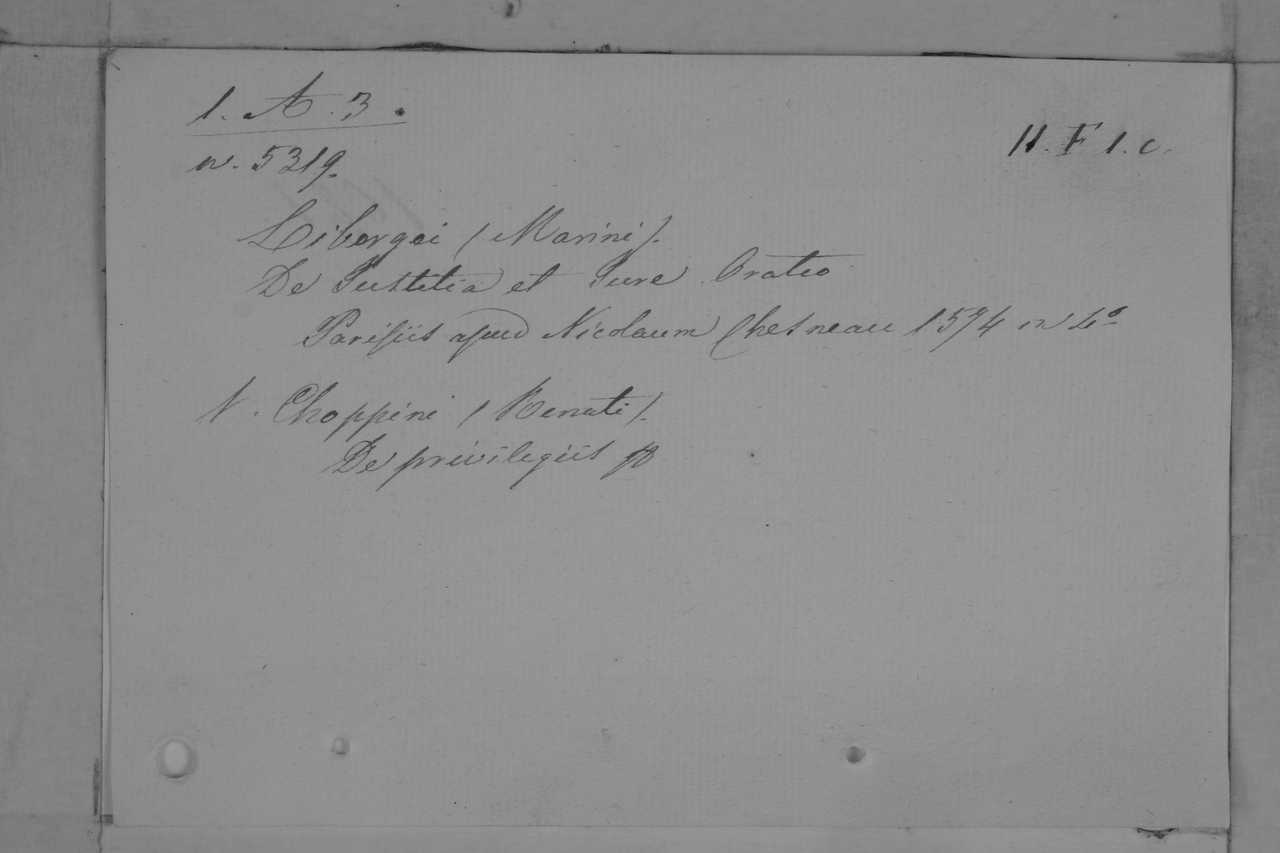 1. A. 3.
H. F 1. c.
n. 5319.
Libergei (Marini).
De Justitia et Jure Oratio
Parisiis apud Nicolaum Chesneau 1574 in 4º
V. Choppini (Renati).
De privilegiis